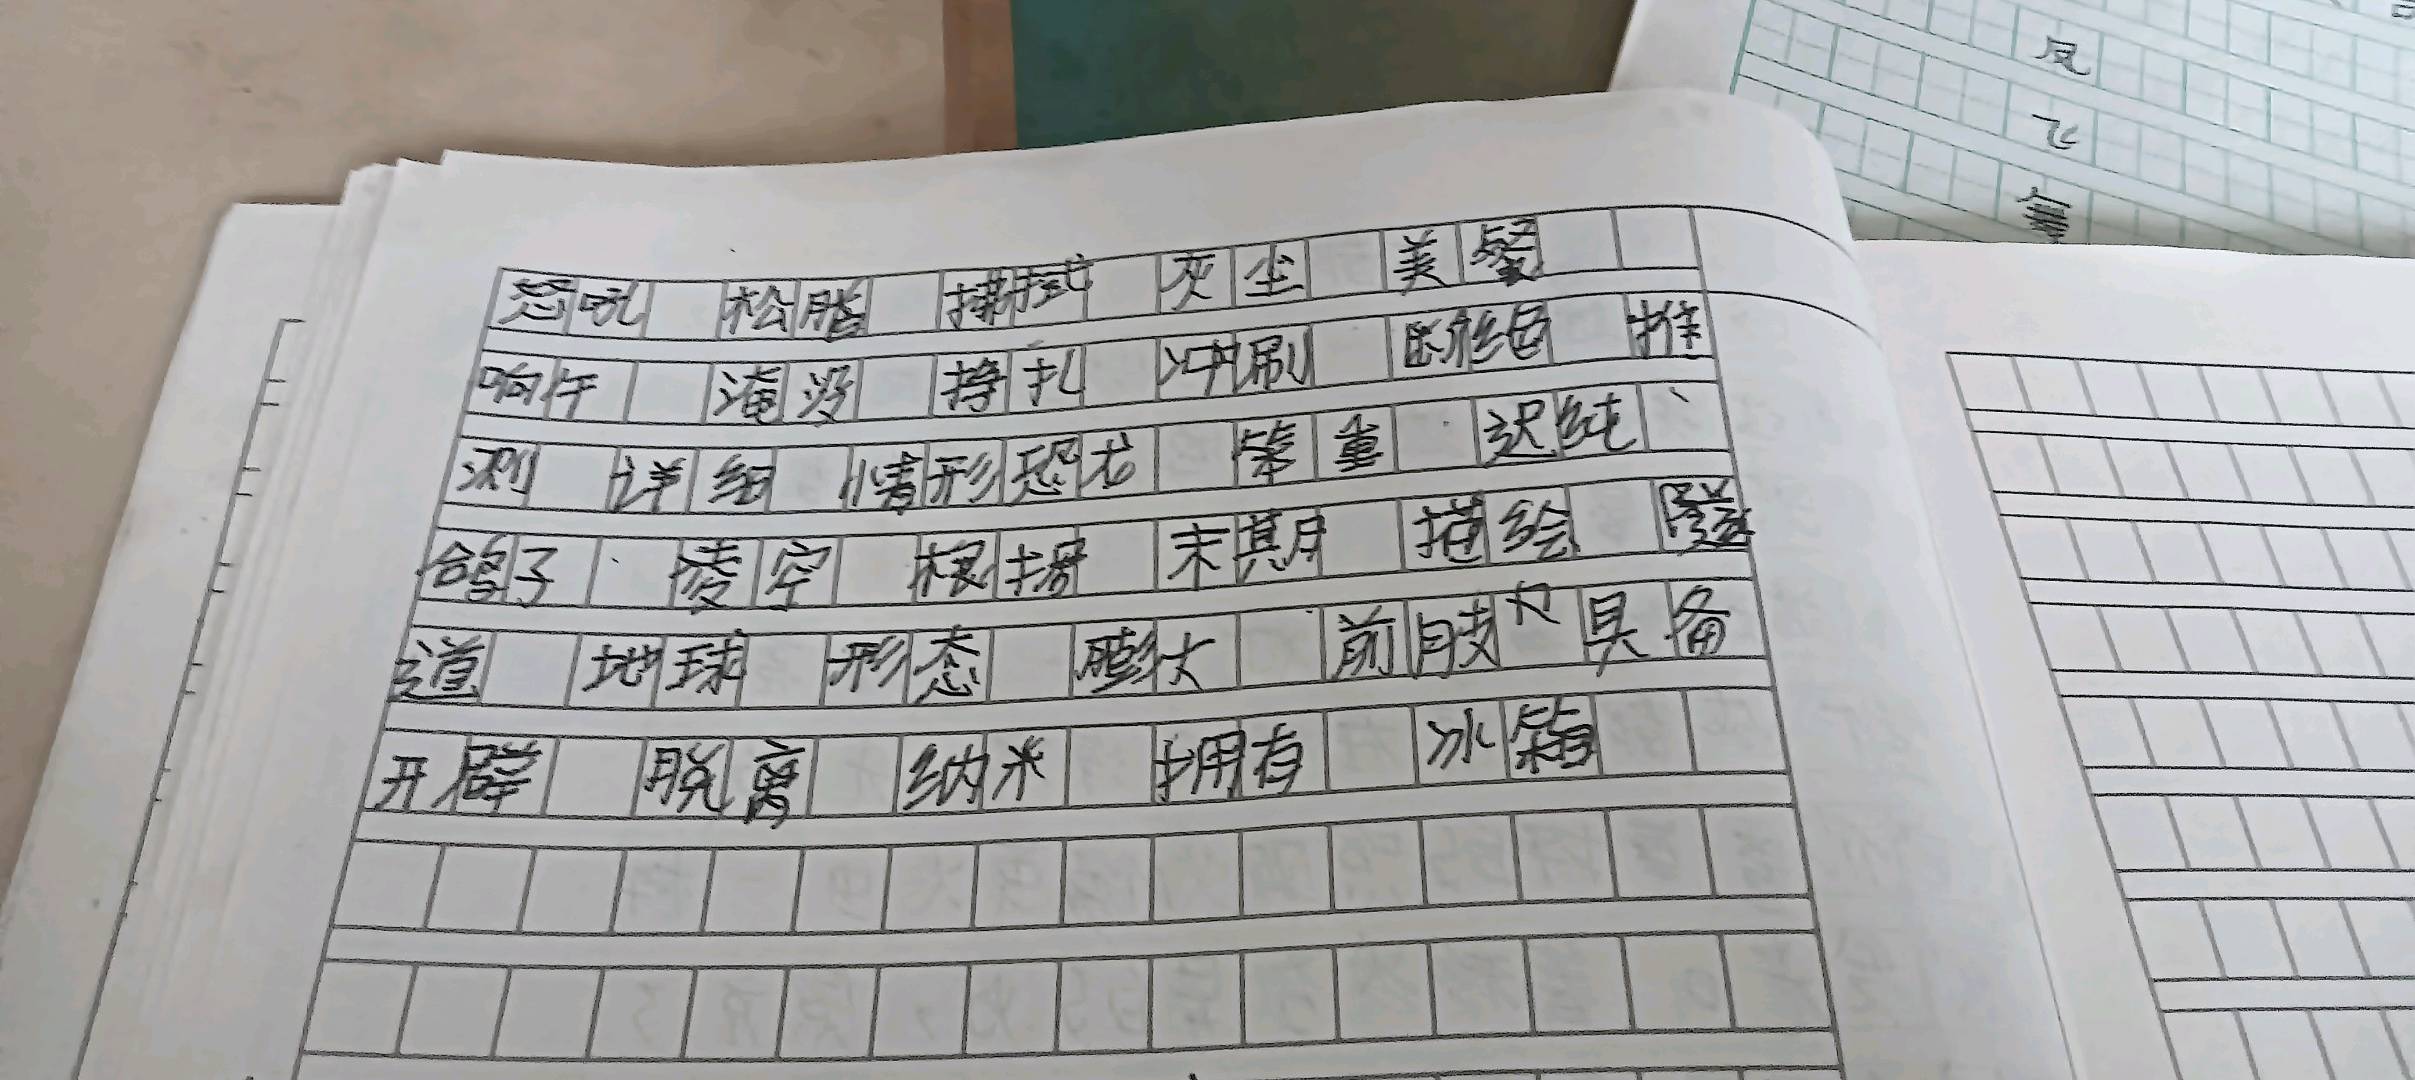 怒吼 松脂 拂拭 灰尘 美餐
晌午 淹没 挣扎 冲刷 推
测 详细 情形 恐龙 笨重 迟钝
鸽子 凌空 根据 末期 描绘 隧
道 地球 形态 膨大 前肢 具备
开辟 脱离 纳米 拥有 冰箱
凤
飞